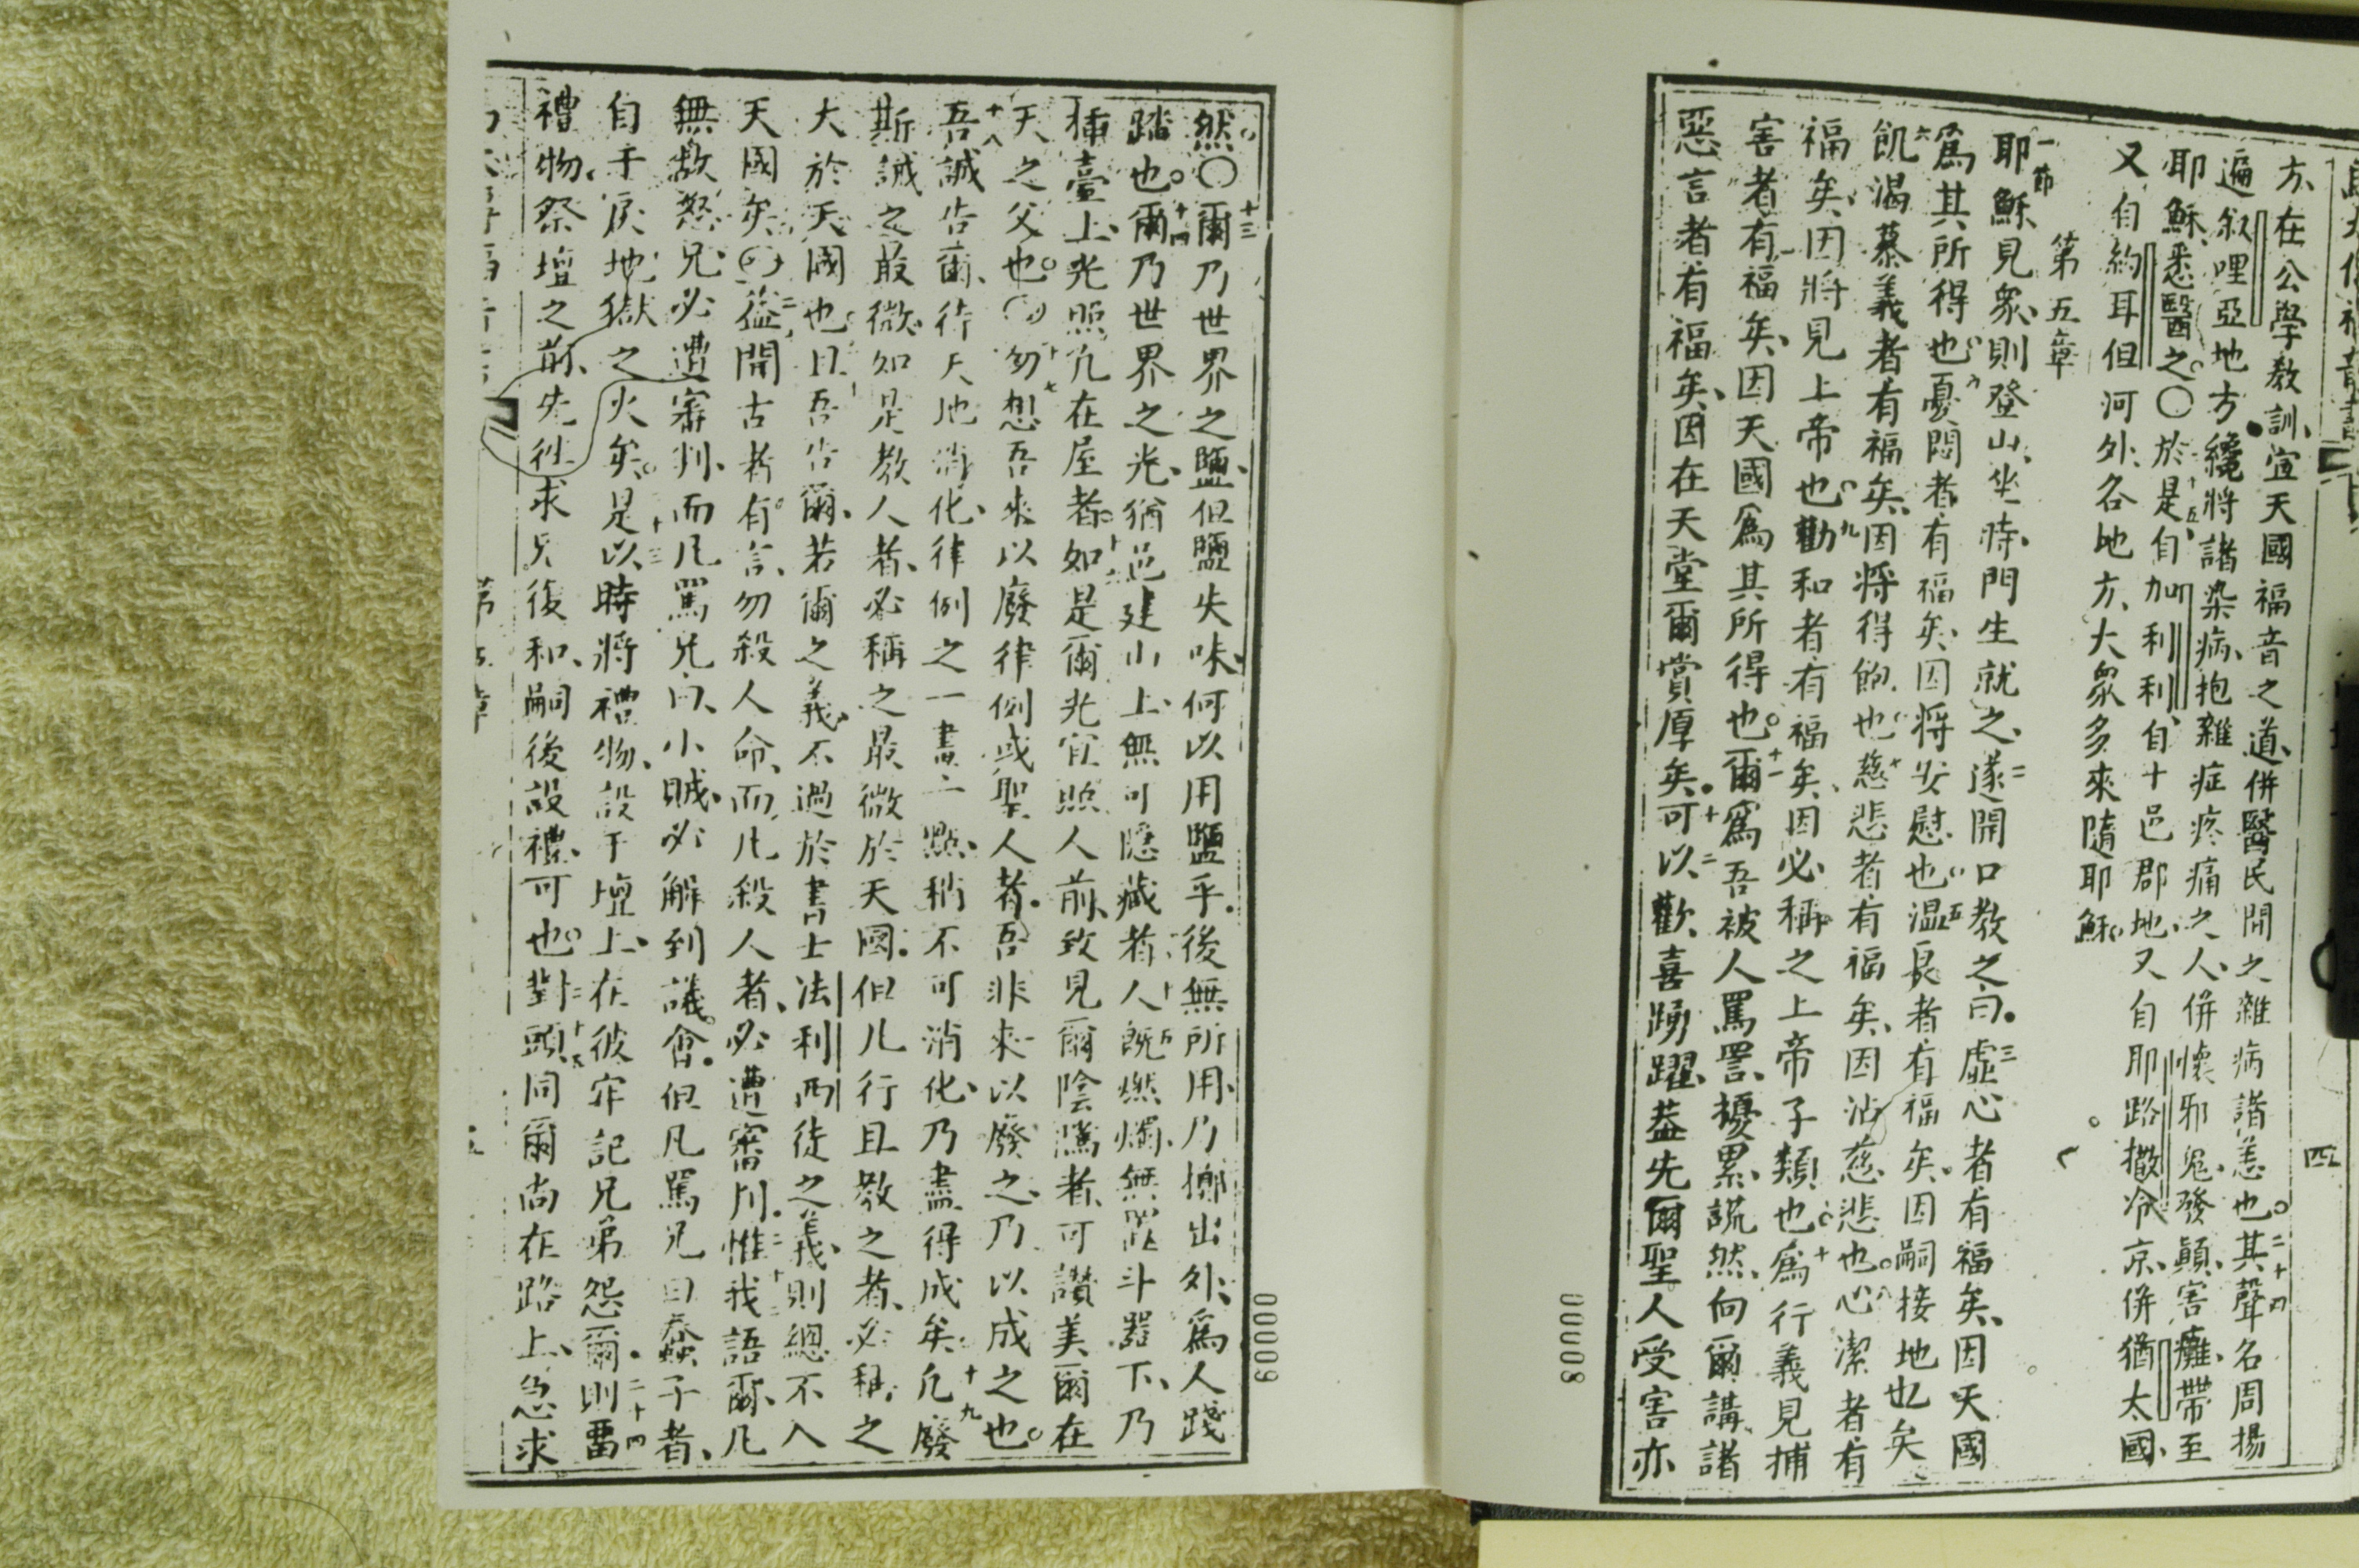 方、在公學教訓、宣天國福音之道、併醫民間之雜病諸恙也。二十四其聲名周揚
遍叙哩亞地方、纔將諸染病、抱雜症疼痛之人、併懷邪鬼、發顛、害癱、帶至
耶穌、悉醫之。〇二十五於是自加利利、自十邑郡地、又自耶路撒冷京、併猶太國、
又自約耳但河外、各地方、大眾多來隨耶穌。
第五章
一節耶穌見眾、則登山、坐時、門生就之、二遂開口教之曰。三虛心者有福矣、因天國
為其所得也。四憂悶者有福矣、因將安慰也。五溫良者有福矣、因嗣接地也矣、
六飢渴慕義者有福矣、因將得飽也。七慈悲者有福矣、因沾慈悲也。八心潔者有
福矣、因將見上帝也。九勸和者有福矣、因必稱之上帝子類也。十為行義見捕
害者有福矣、因天國為其所得也。十一爾為吾被人罵詈、擾累、謊然、向爾講諸
惡言者有福矣、因在天堂爾賞厚矣。十二可以歡喜踴躍、蓋先爾聖人受害亦
四
00008
然。〇十三爾乃世界之鹽、但鹽失味、何以用鹽乎。後無所用、乃擲出外、為人踐
踏也。十四爾乃世界之光、猶邑建山上、無可隱藏者、十五人既燃燭、無置斗器下、乃
插臺上、光照凡在屋者。十六如是爾光宜照人前、致見爾陰騭者、可讚美爾在
天之父也。〇十七勿想吾來以廢律例或聖人者。吾非來以廢之、乃以成之也。
十八吾誠告爾、待天地消化、律例之一畫一點、稍不可消化、乃盡得成矣。十九凡廢
斯誡之最微、如是教人者、必稱之最微於天國。但凡行且教之者、必稱之
大於天國也。二十吾告爾、若爾之義、不過於書士法利西徒之義、則總不入
天國矣。〇二十一蓋聞古者有言、勿殺人命、而凡殺人者、必遭審判。二十二惟我語爾、凡
無故怒兄、必遭審判、而凡罵兄曰、小賊、必解到議會。但凡罵兄曰蠢子者、
自干戾地獄之火矣。二十三是以時將禮物、設于壇上、在彼記兄弟怨爾。二十四則畱
禮物、祭壇之前、先往求兄復和、嗣後設禮、可也。二十五對頭同爾尚在路上、急求
第五章
00009